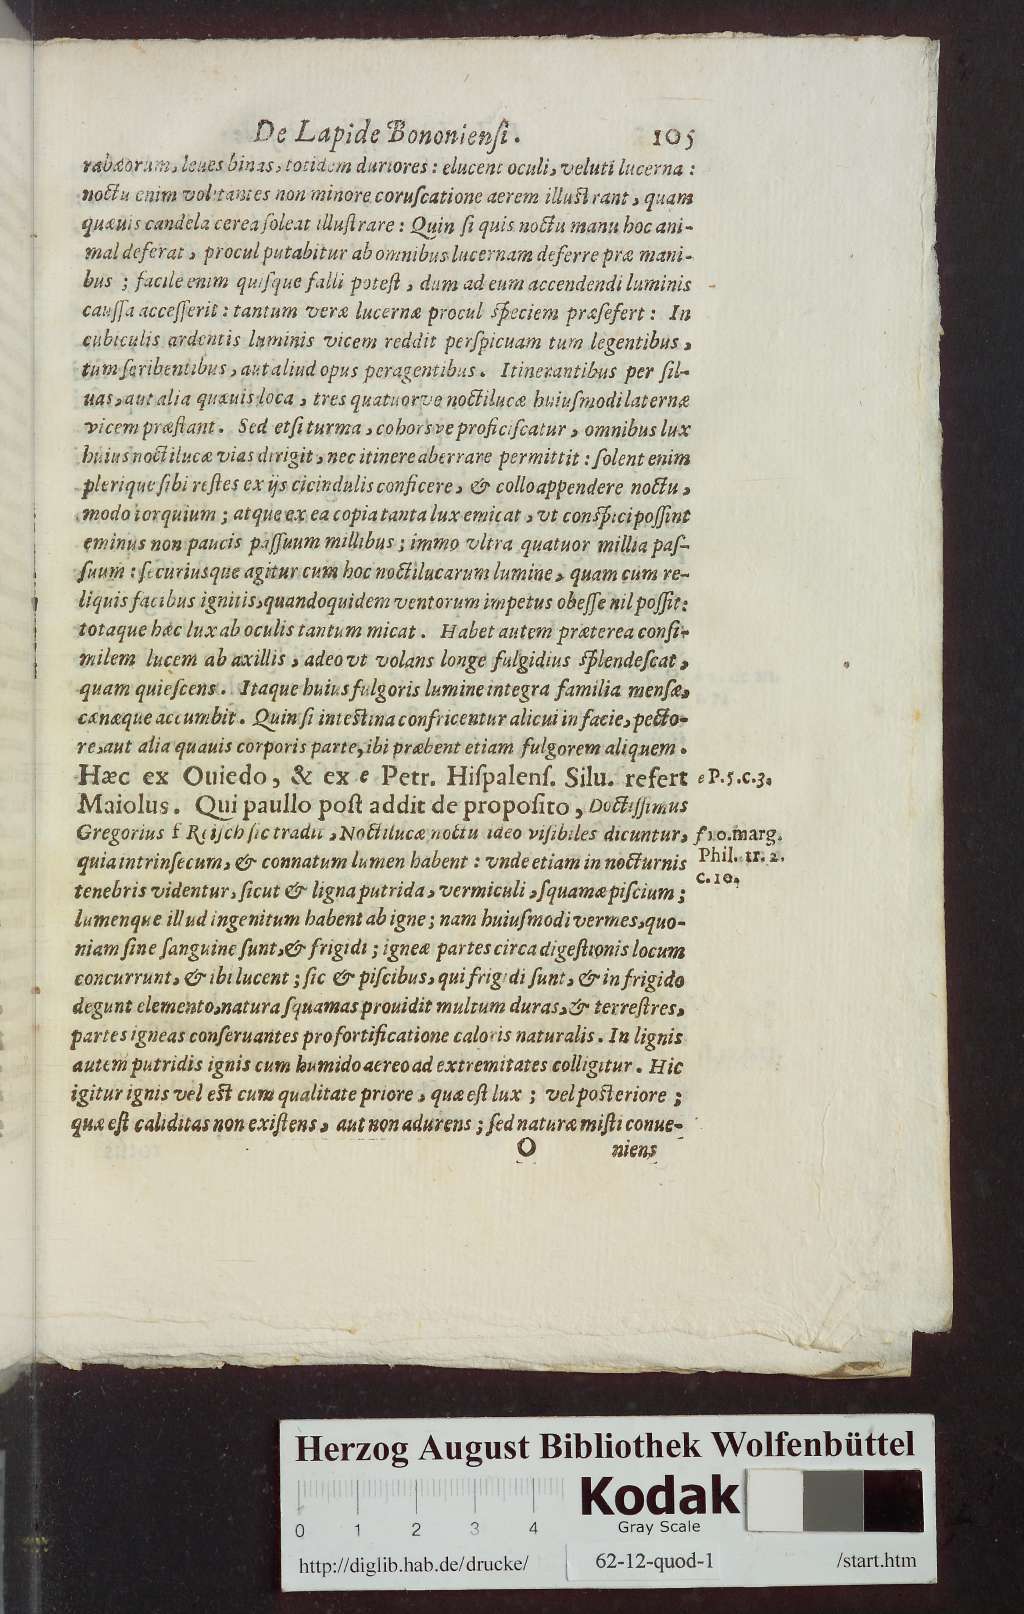 De Lapide Bononienſi. 105
rabæorum, leues binas, totidem duriores: elucent oculi, veluti lucerna:
noctu enim volitantes non minore coruſcatione aerem illuſtrant, quam
quæuis candela cerea ſoleat illuſtrare: Quin ſi quis noctu manu hoc ani-
mal deferat, procul putabitur ab omnibus lucernam deferre præ mani-
bus; facile enim quiſque falli poteſt, dum ad eum accendendi luminis
cauſſa acceſſerit: tantum veræ lucernæ procul ſpeciem præſefert: In
cubiculis ardentis luminis vicem reddit perſpicuam tum legentibus,
tum ſcribentibus, aut aliud opus peragentibus. Itinerantibus per ſil-
uas, aut alia quæuis loca, tres quatuorve noctilucæ huiuſmodi laternæ
vicem præſtant. Sed etſi turma, cohorsve proficiſcatur, omnibus lux
huius noctilucæ vias dirigit, nec itinere aberrare permittit: ſolent enim
plerique ſibi reſtes ex ijs cicindulis conficere, & collo appendere noctu,
modo torquium; atque ex ea copia tanta lux emicat, vt conſpici poſſint
eminus non paucis paſſuum millibus; immo vltra quatuor millia paſ-
ſuum: ſecuriusque agitur cum hoc noctilucarum lumine, quam cum re-
liquis facibus ignitis, quandoquidem ventorum impetus obeſſe nil poſſit:
totaque hæc lux ab oculis tantum micat. Habet autem præterea conſi-
milem lucem ab axillis, adeo vt volans longe fulgidius ſplendeſcat,
quam quieſcens. Itaque huius fulgoris lumine integra familia menſæ,
cænæque accumbit. Quin ſi inteſtina confricentur alicui in facie, pecto-
re, aut alia quauis corporis parte, ibi præbent etiam fulgorem aliquem.
Hæc ex Ouiedo, & ex e Petr. Hiſpalenſ. Silu. refert
e P.5.c.3.
Maiolus. Qui paullo poſt addit de propoſito, Doctiſſimus
Gregorius f Reiſch ſic tradit, Noctilucæ noctu ideo viſibiles dicuntur,
f 10. marg.
Phil. tr. 2.
c. 10.
quia intrinſecum, & connatum lumen habent: vnde etiam in nocturnis
tenebris videntur, ſicut & ligna putrida, vermiculi, ſquamæ piſcium;
lumenque illud ingenitum habent ab igne; nam huiuſmodi vermes, quo-
niam ſine ſanguine ſunt, & frigidi; igneæ partes circa digeſtionis locum
concurrunt, & ibi lucent; ſic & piſcibus, qui frigidi ſunt, & in frigido
degunt elemento, natura ſquamas prouidit multum duras, & terreſtres,
partes igneas conſeruantes pro fortificatione caloris naturalis. In lignis
autem putridis ignis cum humido aereo ad extremitates colligitur. Hic
igitur ignis vel eſt cum qualitate priore, quæ eſt lux; vel poſteriore;
quæ eſt caliditas non exiſtens, aut non adurens; ſed naturæ miſti conue-
O niens
Herzog August Bibliothek Wolfenbüttel
0 1 2 3 4
Kodak
Gray Scale
http://diglib.hab.de/drucke/ 62-12-quod-1 /start.htm